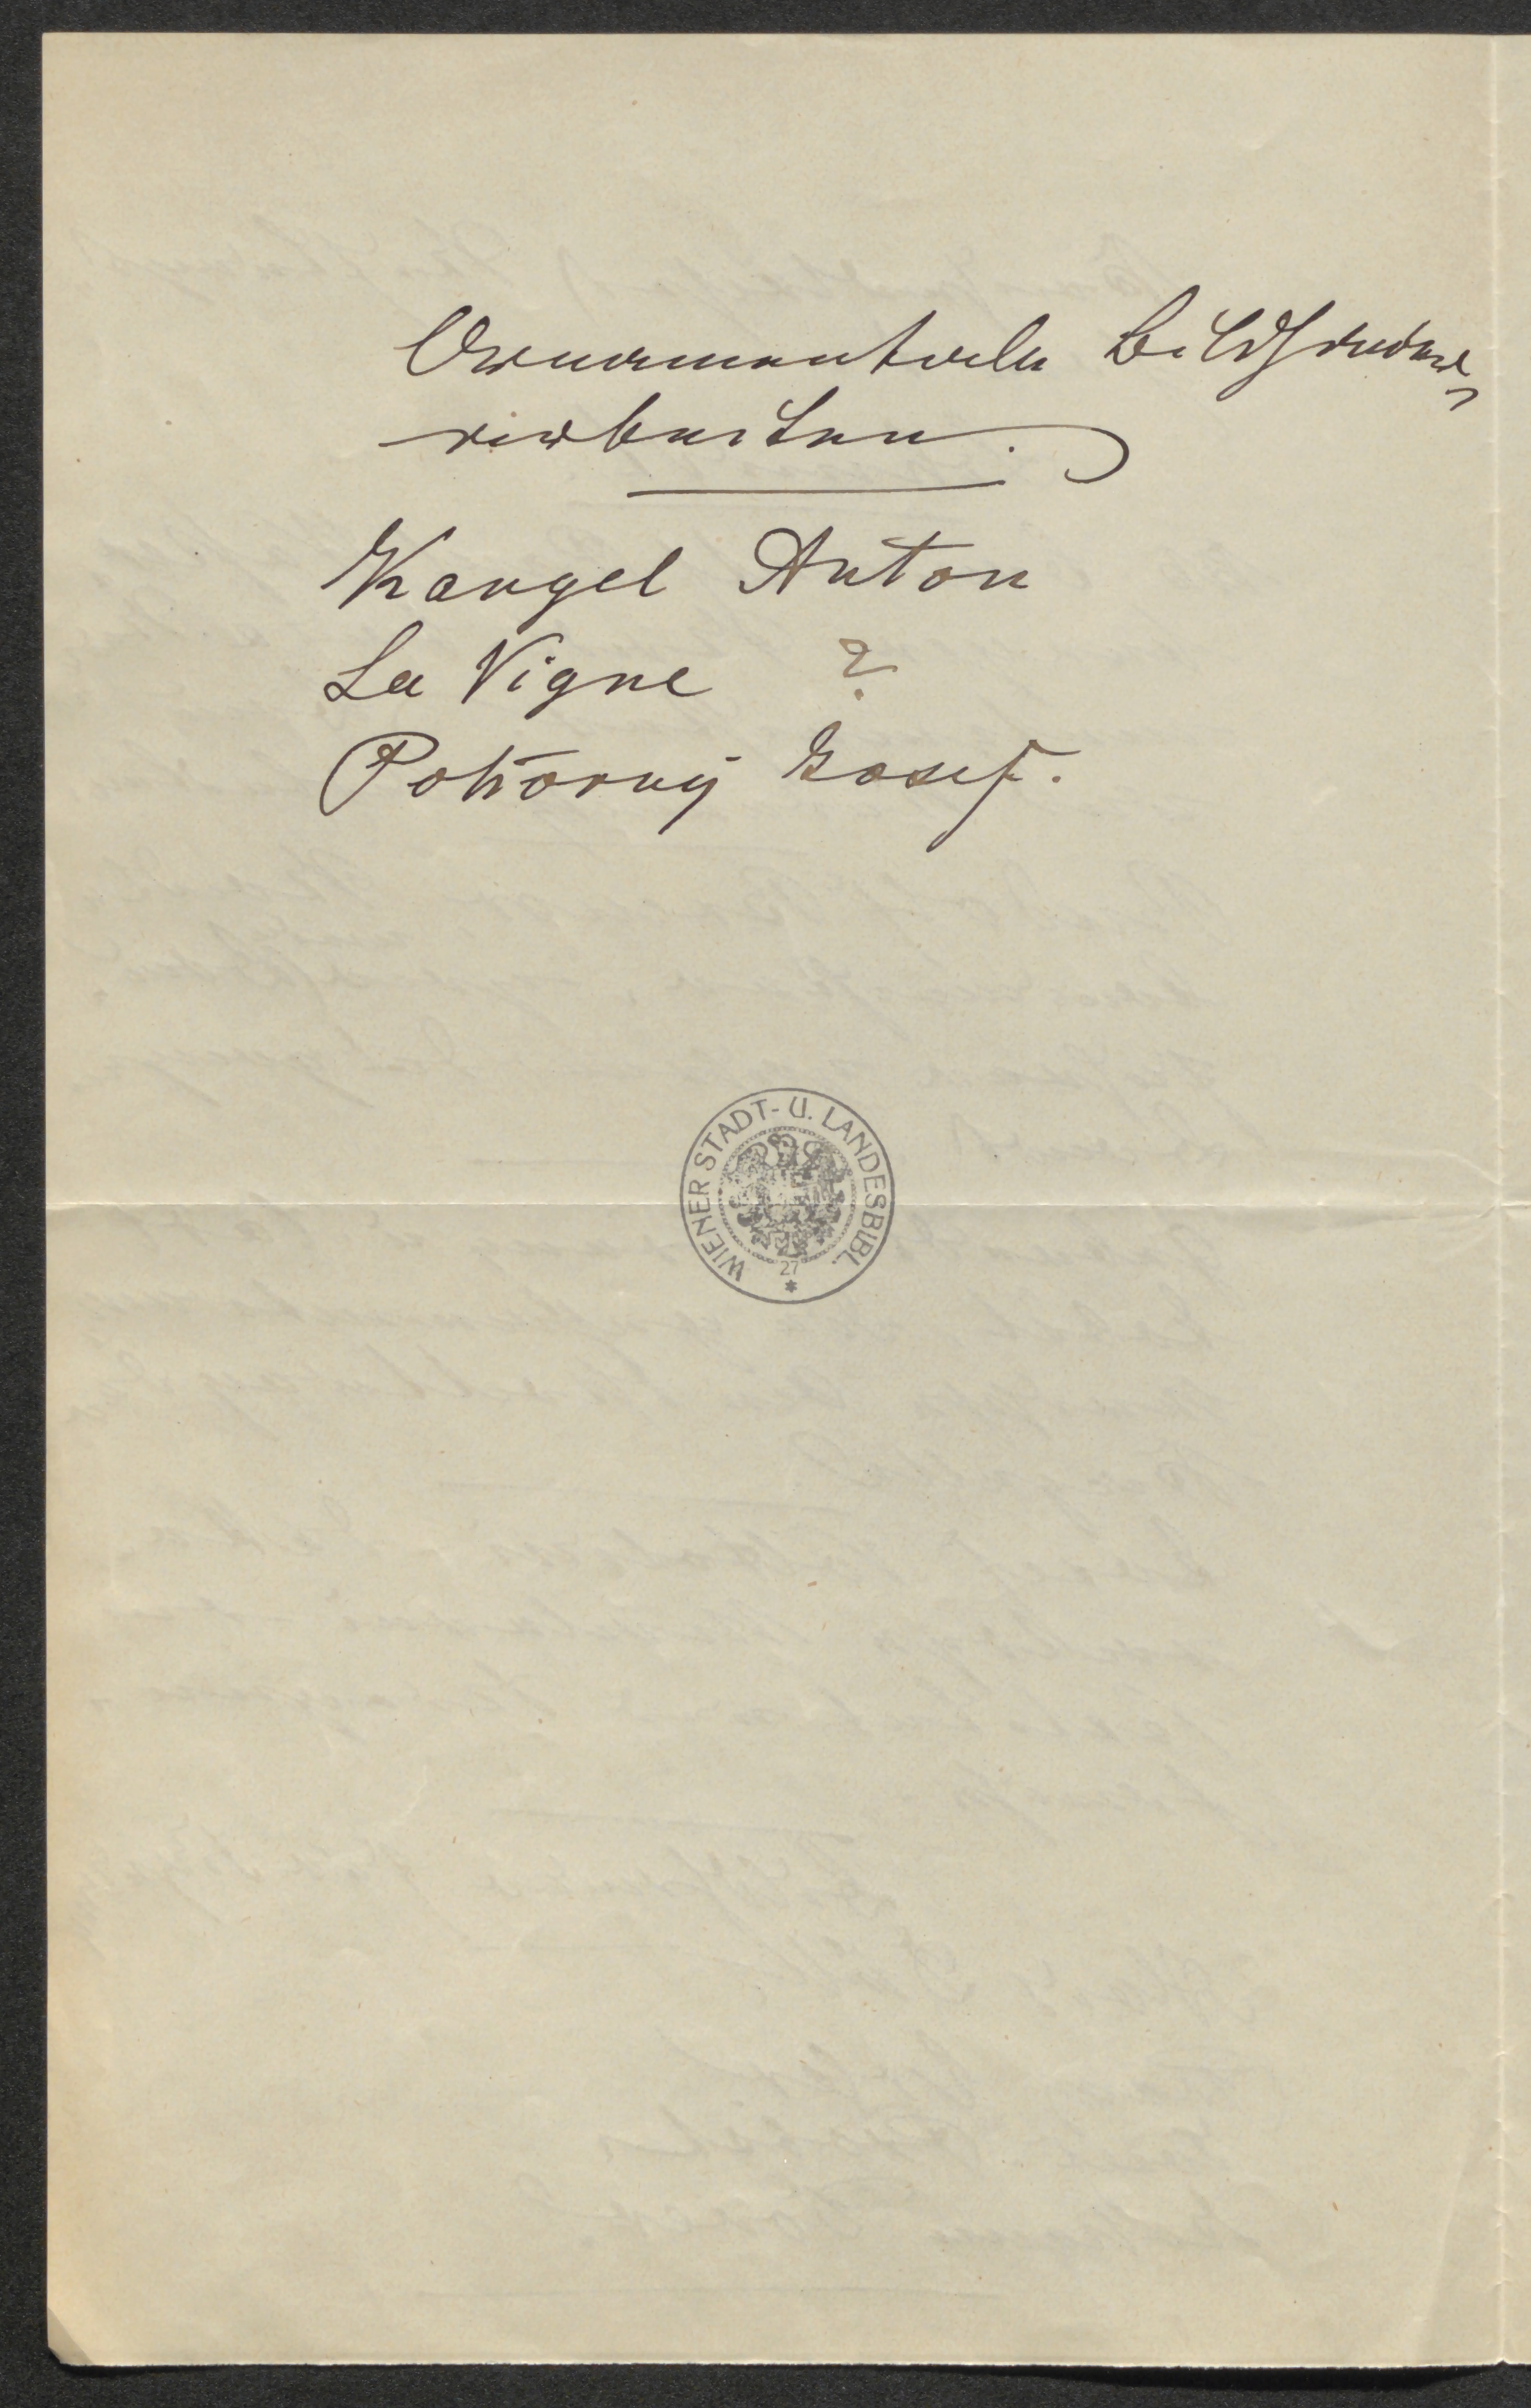 Ornamentale Bildhauer-
arbeiten.
Kangel Anton
La Vigne ?
Pokorny Josef.
WIENER STADT- U. LANDESBIBL.
27